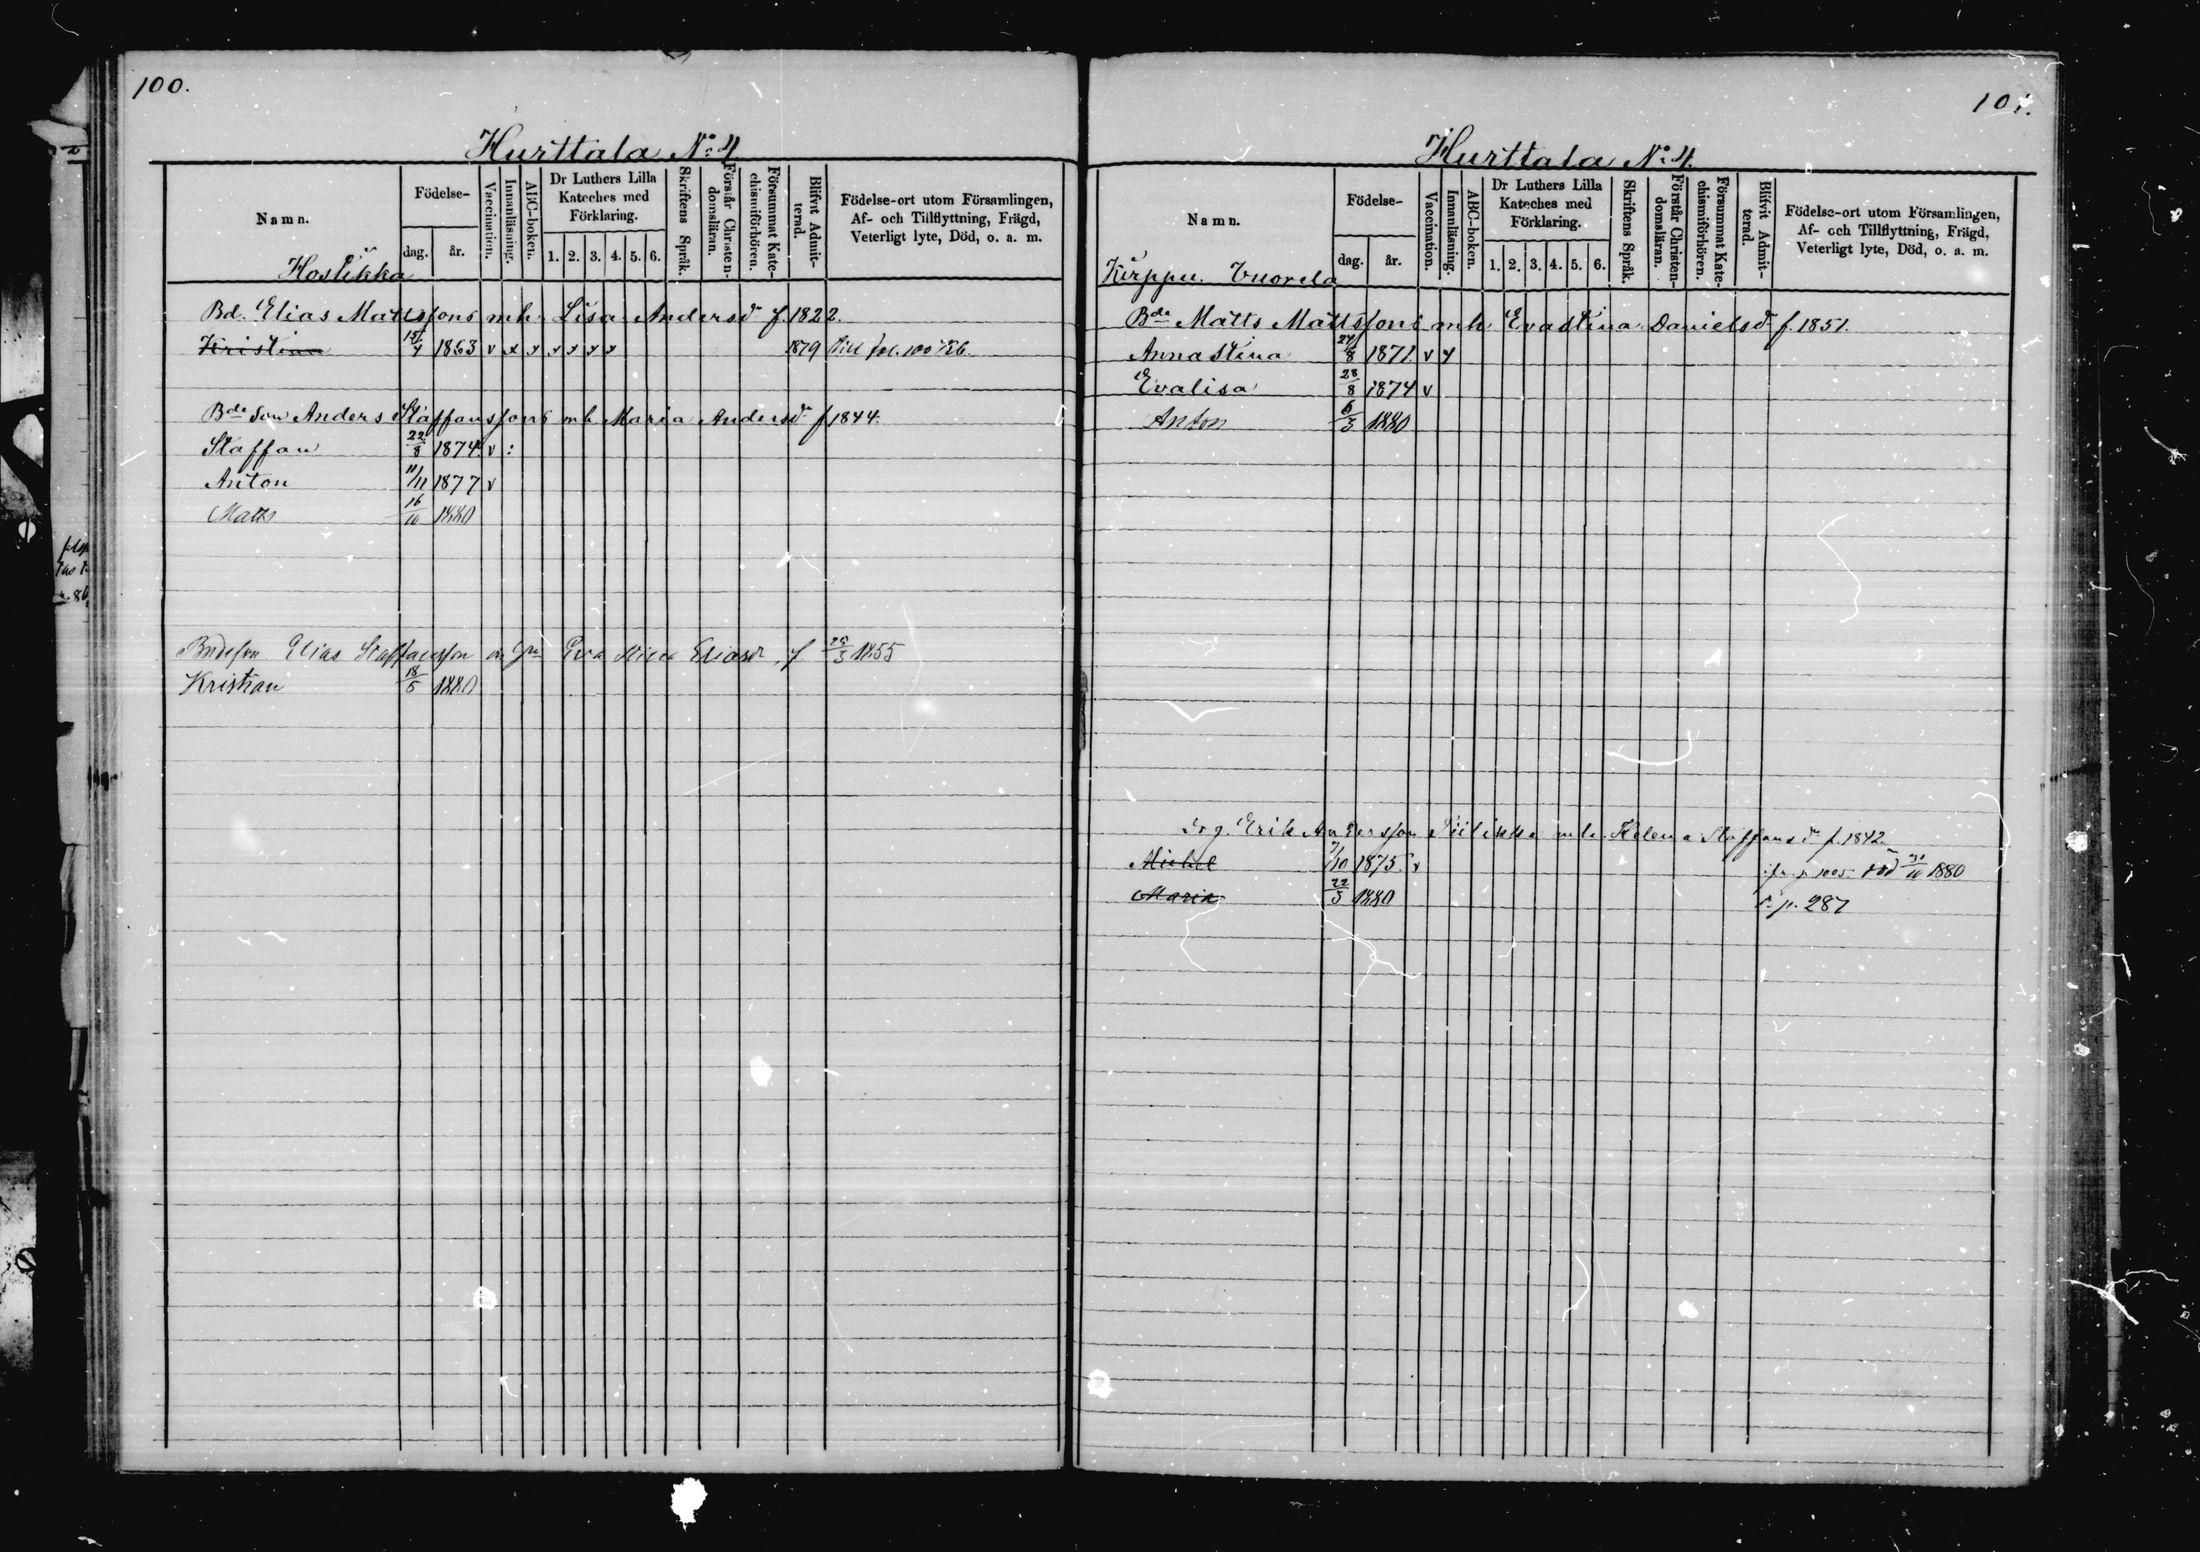 100.
Hurttala No 4
Namn.
Födelse-
dag.
år.
Vaccination.
Innanläsning.
ABC-boken.
Dr Luthers Lilla
Kateches med
Förklaring.
1. 2. 3. 4. 5. 6.
Skriftens Språk.
Förstår Christen-
domsläran.
Försummat Kate-
chismiförhören.
Blifvit Admit-
terad.
Födelse-ort utom Församlingen,
Af- och Tillflyttning, Frägd,
Veterligt lyte, Död, o. a. m.
Hostikka
Bd. Elias Mattssons mh. Lisa Andersdr f. 1822.
Kristian 1863 v x x x x x x 1879 Till fol. 100
Bde Son Anders Staffanssons mh Maria Andersdr f 1844.
Staffan 22/8 1874 v :
Anton 11/11 1877 v
Matts 16/10 1880
Bndeson Elias Staffansson Eva Stina Eliasdr f 1855
Kristian 18/5 1880
101.
Hurttala No 4.
Namn.
Födelse-
dag.
år.
Vaccination.
Innanläsning.
ABC-boken.
Dr Luthers Lilla
Kateches med
Förklaring.
1. 2. 3. 4. 5. 6.
Skriftens Språk.
Förstår Christen-
domsläran.
Försummat Kate-
chismiförhören.
Blifvit Admit-
terad.
Födelse-ort utom Församlingen,
Af- och Tillflyttning, Frägd,
Veterligt lyte, Död, o. a. m.
Kirppu. Vuorela
Bde Matts Mattssons mh. Evastina Danielsdr f. 1851.
Annastina 27/8 1871. v x
Evalisa 28/8 1874 v
Anton 6/3 1880
Erik Andersson mh. Helena Staffansdr f. 1842.
Michel 7/10 1875 v död 1880
Maria 22/5 1880 p. 287